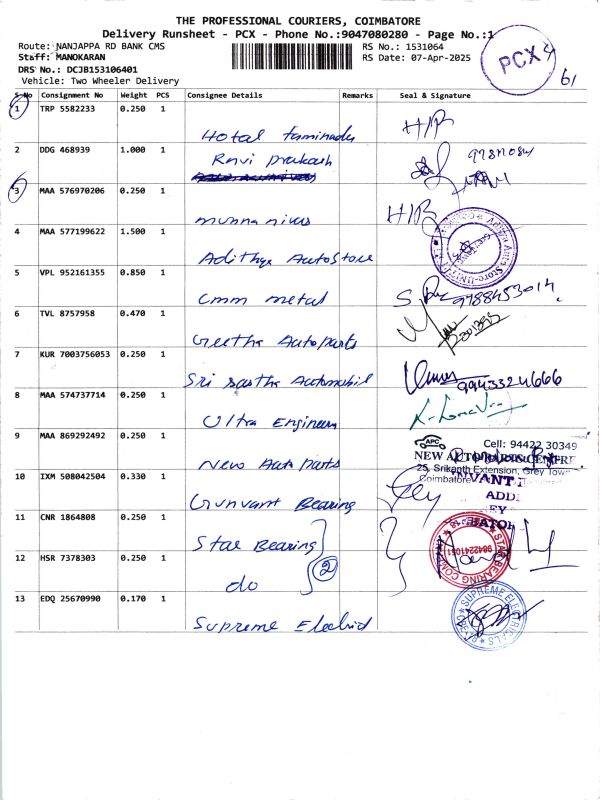 THE PROFESSIONAL COURIERS, COIMBATORE
Delivery Runsheet - PCX - Phone No.:9047080280 - Page No.:1
Route: NANJAPPA RD BANK CMS
RS No.: 1531064
Staff: MANOKARAN
RS Date: 07-Apr-2025
DRS No.: DCJB153106401
Vehicle: Two Wheeler Delivery
PCX 4
61
S No Consignment No Weight PCS Consignee Details Remarks Seal & Signature
1 TRP 5582233 0.250 1
Hotal Tamilnadu H/R
2 DDG 468939 1.000 1
Ravi Prakash
3 MAA 576970206 0.250 1
munna nivas H/R
4 MAA 577199622 1.500 1
Adithya AutoStore
5 VPL 952161355 0.850 1
Cmm metal 9788453014
6 TVL 8757958 0.470 1
Geetha Autoparts
7 KUR 7003756053 0.250 1
Sri Sastha Automobil 9943324666
8 MAA 574737714 0.250 1
Ultra Engineers
9 MAA 869292492 0.250 1
New Auto Parts
APC Cell: 94422 30349
NEW AUTOPARTS CENTRE
25, Srikanth Extension, Grey Town
Coimbatore
10 IXM 508042504 0.330 1
Gunvant Bearing
11 CNR 1864808 0.250 1
Star Bearing
12 HSR 7378303 0.250 1
do 2
STAR BEARING COMPANY
9842241051
13 EDQ 25670990 0.170 1
Supreme Electrical
SUPREME ELECTRICALS